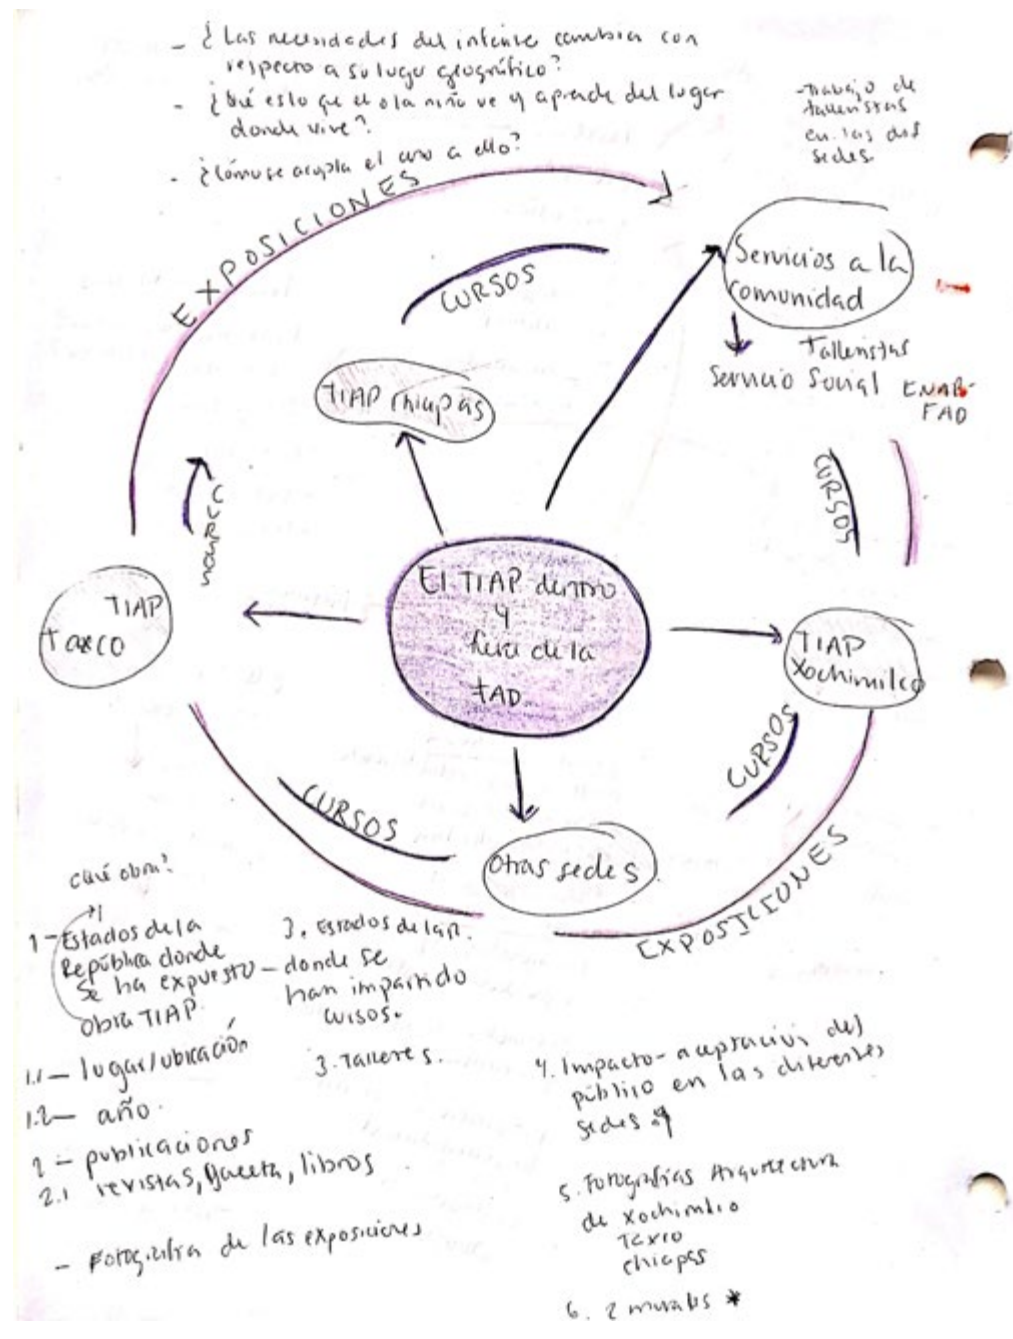 - ¿Las necesidades del infante cambia con
respecto a su lugar geográfico?
- ¿Qué es lo que el o la niño ve y aprende del lugar
donde vive?
- ¿Cómo se acopla el uno a ello?
- Trabajo de
talleristas
en las dos
sedes
EXPOSICIONES
CURSOS
Servicios a la
comunidad
Talleristas
Servicio Social ENAP-
FAD
TIAP Chiapas
CURSOS
CURSOS
El TIAP dentro
y
fuera de la
FAD
TIAP
Taxco
TIAP
Xochimilco
CURSOS
CURSOS
Otras sedes
EXPOSICIONES
¿Qué obra?
1 - Estados de la
República donde
se ha expuesto
Obra TIAP.
1.1 - lugar/ubicación
1.2 - año.
2 - publicaciones
2.1 revistas, gaceta, libros
- Fotografía de las exposiciones
3. Estados de la R.
- donde se
han impartido
cursos.
3. Talleres.
4. Impacto - aceptación del
público en las diferentes
sedes
5. Fotografías Arquitectura
de Xochimilco
Taxco
Chiapas
6. 2 murales *